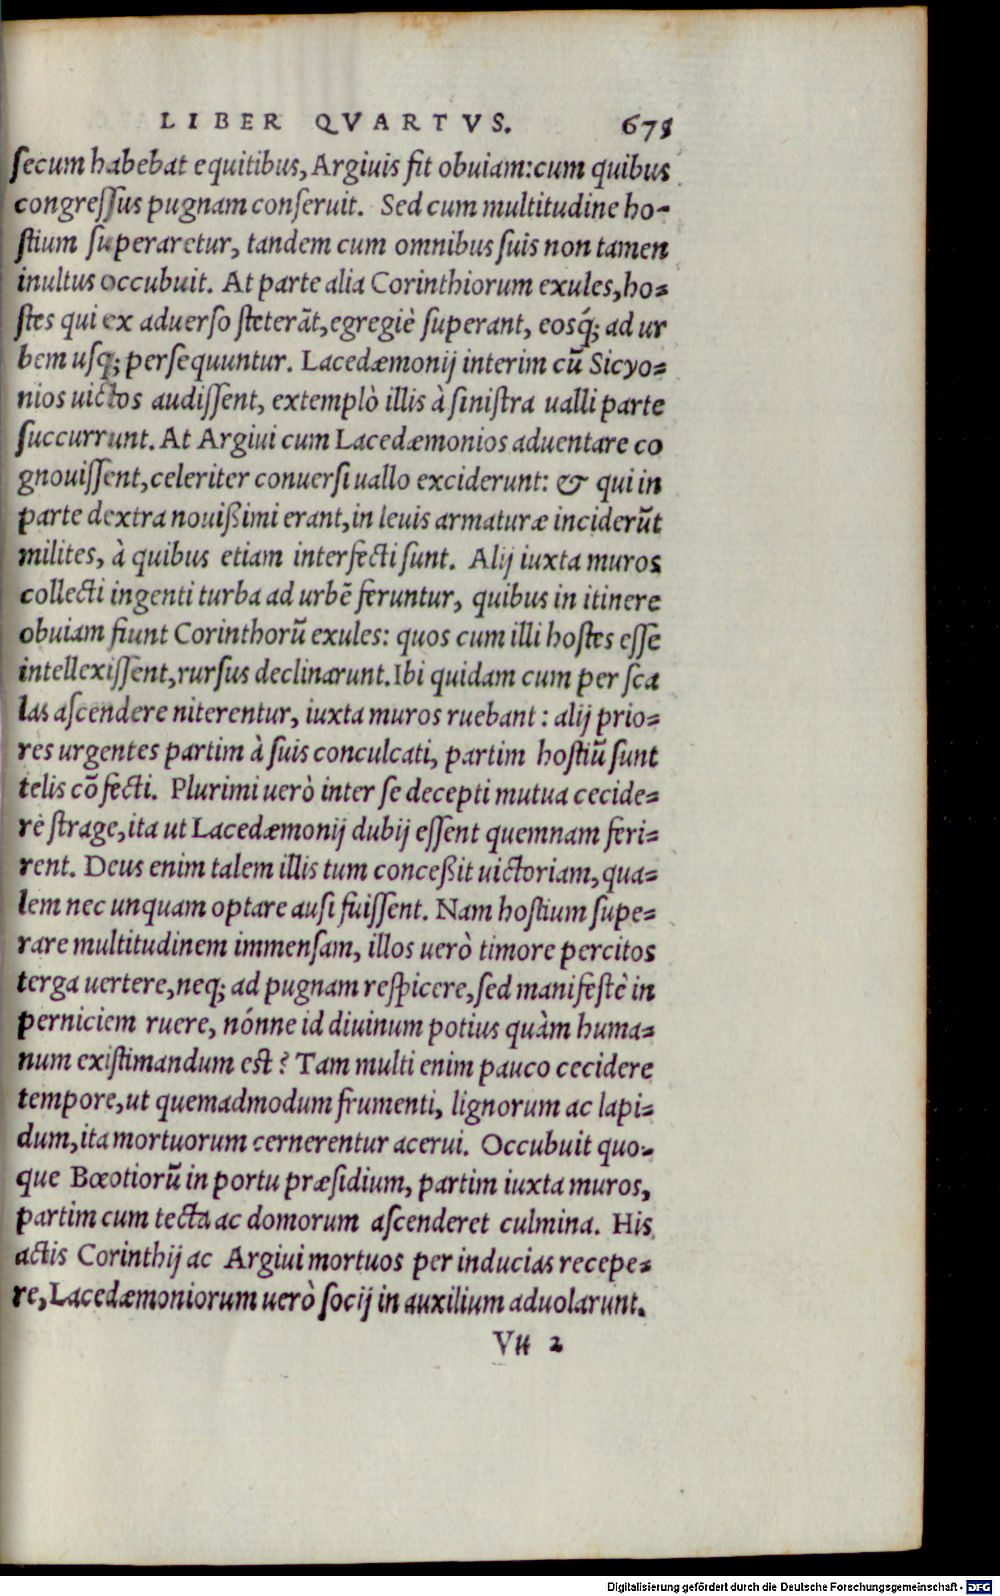 LIBER QVARTVS. 675
secum habebat equitibus, Argiuis fit obuiam: cum quibus
congreſſus pugnam conſeruit. Sed cum multitudine ho-
ſtium ſuperaretur, tandem cum omnibus ſuis non tamen
inultus occubuit. At parte alia Corinthiorum exules, ho-
ſtes qui ex aduerſo ſteterãt, egregiè ſuperant, eosq́; ad ur
bem uſq; perſequuntur. Lacedæmonij interim cũ Sicyo-
nios uictos audiſſent, extemplò illis à ſiniſtra ualli parte
ſuccurrunt. At Argiui cum Lacedæmonios aduentare co
gnouiſſent, celeriter conuerſi uallo exciderunt: & qui in
parte dextra nouißimi erant, in leuis armaturæ inciderũt
milites, à quibus etiam interfecti ſunt. Alij iuxta muros
collecti ingenti turba ad urbẽ feruntur, quibus in itinere
obuiam fiunt Corinthorũ exules: quos cum illi hoſtes eſſe
intellexiſſent, rurſus declinarunt. Ibi quidam cum per ſca
las aſcendere niterentur, iuxta muros ruebant: alij prio-
res urgentes partim à ſuis conculcati, partim hoſtiũ ſunt
telis cõfecti. Plurimi uerò inter ſe decepti mutua cecide-
re ſtrage, ita ut Lacedæmonij dubij eſſent quemnam feri-
rent. Deus enim talem illis tum conceßit uictoriam, qua-
lem nec unquam optare auſi fuiſſent. Nam hoſtium ſupe-
rare multitudinem immenſam, illos uerò timore percitos
terga uertere, neq; ad pugnam reſpicere, ſed manifeſtè in
perniciem ruere, nónne id diuinum potius quàm huma-
num exiſtimandum eſt? Tam multi enim pauco cecidere
tempore, ut quemadmodum frumenti, lignorum ac lapi-
dum, ita mortuorum cernerentur acerui. Occubuit quo-
que Bœotiorũ in portu præſidium, partim iuxta muros,
partim cum tecta ac domorum aſcenderet culmina. His
actis Corinthij ac Argiui mortuos per inducias recepe-
re, Lacedæmoniorum uerò ſocij in auxilium aduolarunt.
Vu 2
Digitalisierung gefördert durch die Deutsche Forschungsgemeinschaft - DFG